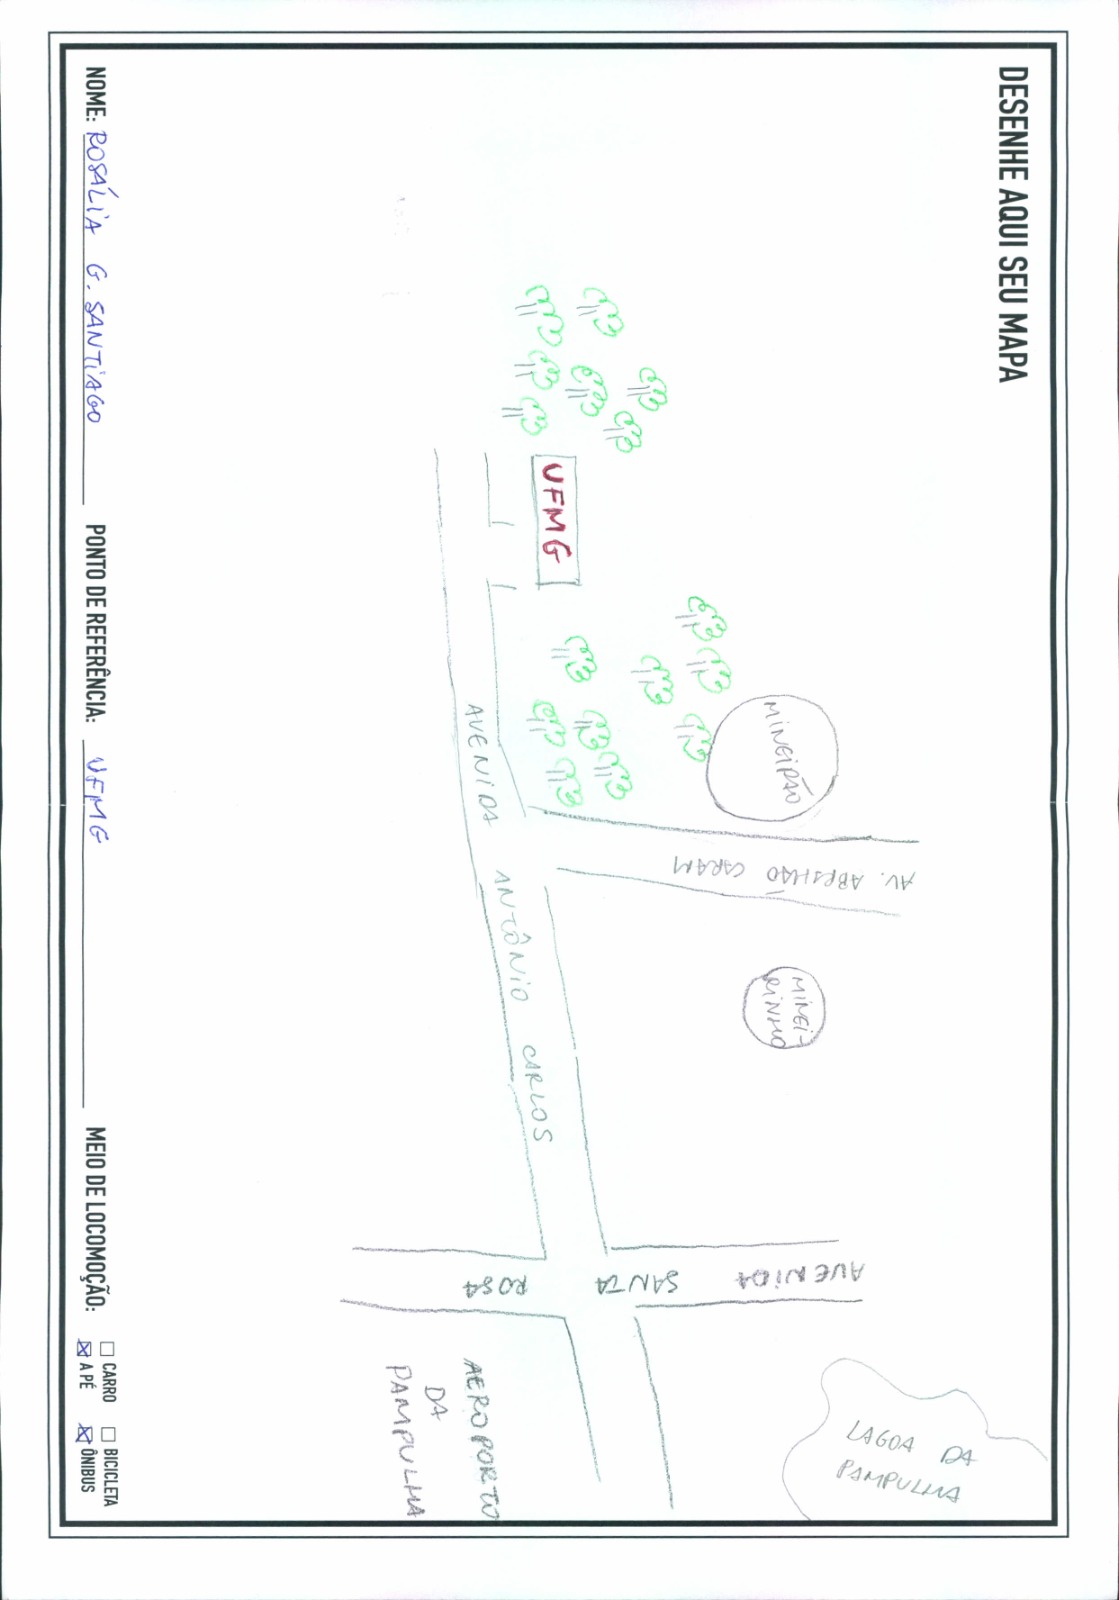 DESENHE AQUI SEU MAPA
LAGOA DA
PAMPULHA
AV. ABRAHÃO CARAM
MINEIRÃO
MINEI-
RINHO
AVENIDA SANTA ROSA
UFMG
AVENIDA ANTÔNIO CARLOS
AEROPORTO
DA
PAMPULHA
NOME: ROSÁLIA G. SANTIAGO
PONTO DE REFERÊNCIA: UFMG
MEIO DE LOCOMOÇÃO:
CARRO
BICICLETA
A PÉ
ÔNIBUS